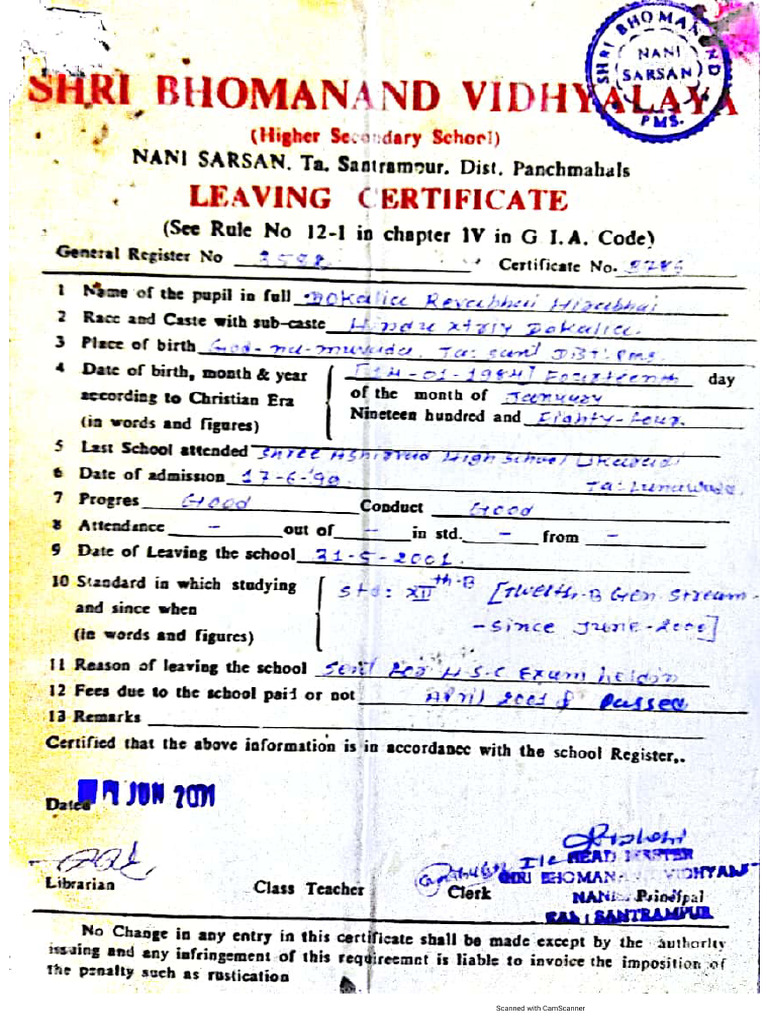 SHRI BHOMANAND
NANI
SARSAN
PMS.
SHRI BHOMANAND VIDHYALAYA
(Higher Secondary School)
NANI SARSAN. Ta. Santrampur. Dist. Panchmahals
LEAVING CERTIFICATE
(See Rule No 12-1 in chapter 1V in G I.A. Code)
General Register No 3598 Certificate No. 3786
1 Name of the pupil in full Dokalia Revabhai Hirabhai
2 Race and Caste with sub-caste Hindu Dokalia.
3 Place of birth God-na-muvada, Ta: Sant Dist: Pms.
4 Date of birth, month & year [14-01-1984] Fourteenth day
according to Christian Era of the month of January
(in words and figures) Nineteen hundred and Eighty-Four.
5 Last School attended Shree High School
6 Date of admission 17-6-99. Ta: Lunawada.
7 Progres Good Conduct Good
8 Attendance - out of - in std. - from -
9 Date of Leaving the school 31-5-2001.
10 Standard in which studying std: XIIth-B [Twelth-B Gen. Stream
and since when - since June-2000]
(in words and figures)
11 Reason of leaving the school Sent for H.S.C Exam held in
12 Fees due to the school paid or not April 2001 & Passed
13 Remarks
Certified that the above information is in accordance with the school Register,.
Dated JUN 2001
I/c HEAD MASTER
SHRI BHOMANAND VIDHYALAYA
Librarian Class Teacher Clerk NANI Principal
TAL: SANTRAMPUR
No Change in any entry in this certificate shall be made except by the authority
issuing and any infringement of this requireemnt is liable to invoice the imposition of
the penalty such as rustication
Scanned with CamScanner